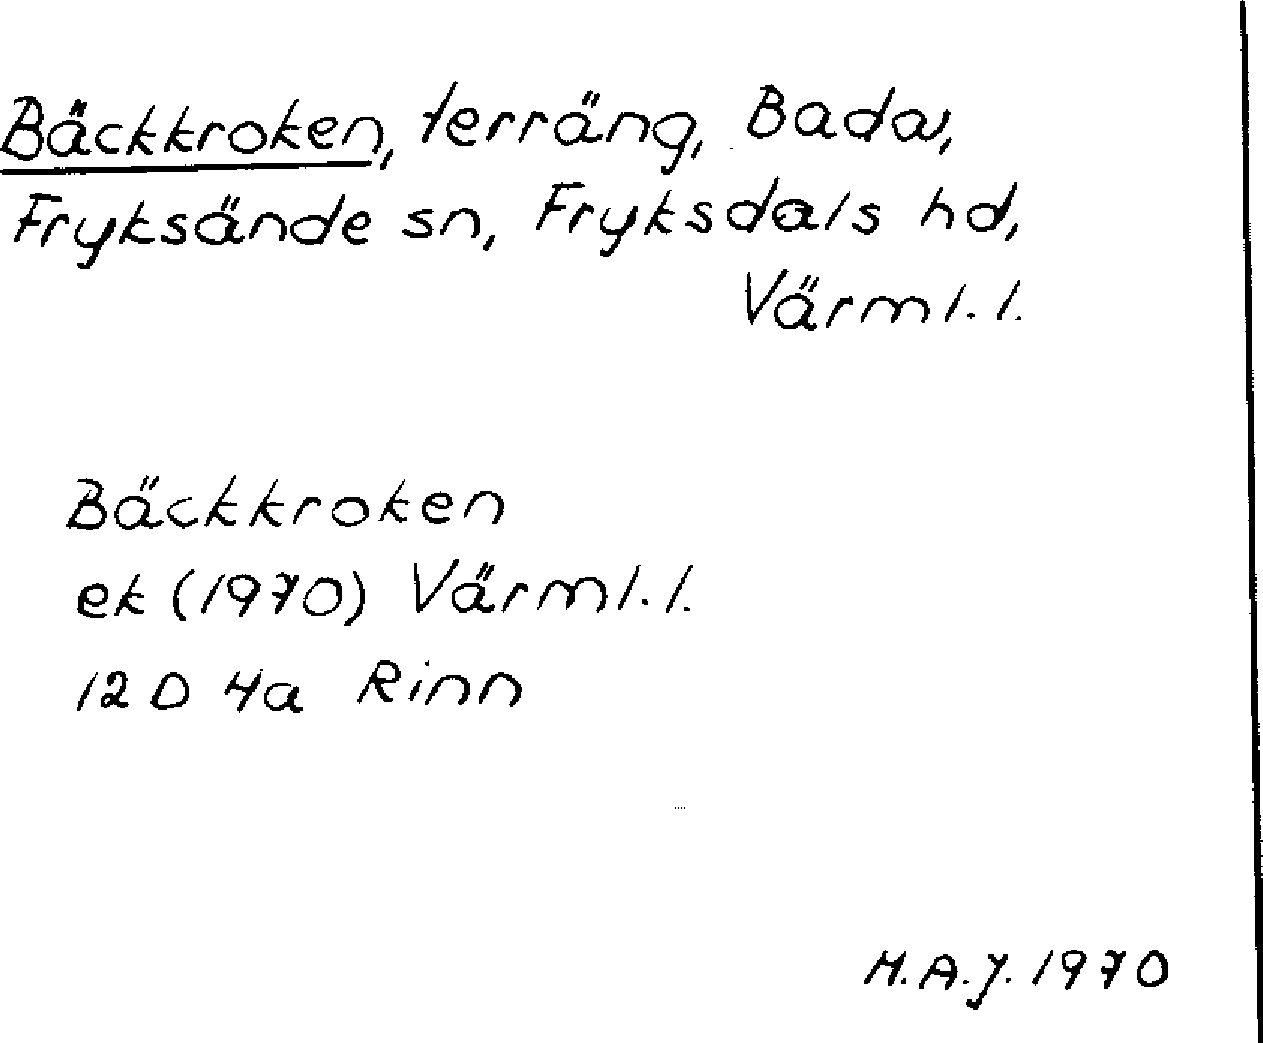 Bäckkroken, terräng, Bada,
Fryksände sn, Fryksdals hd,
Värml. l.
Bäckkroken
ek (1970) Värml. l.
12 D 4a Rinn
H.A.J. 1970